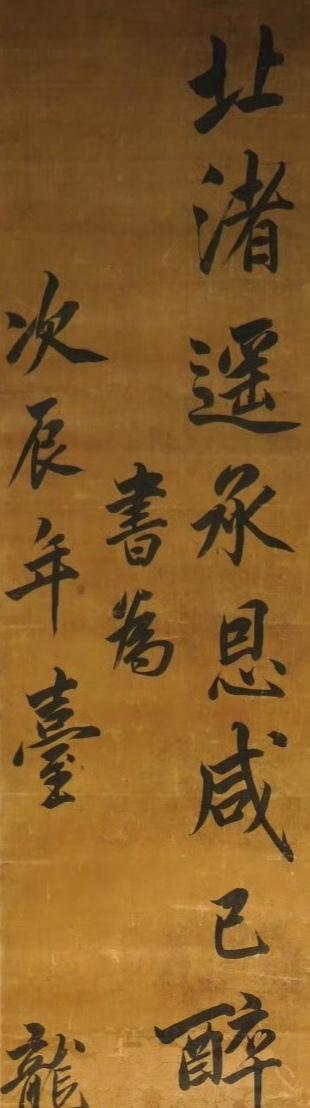 北渚遥承恩咸已醉
書為
次辰年臺
龍